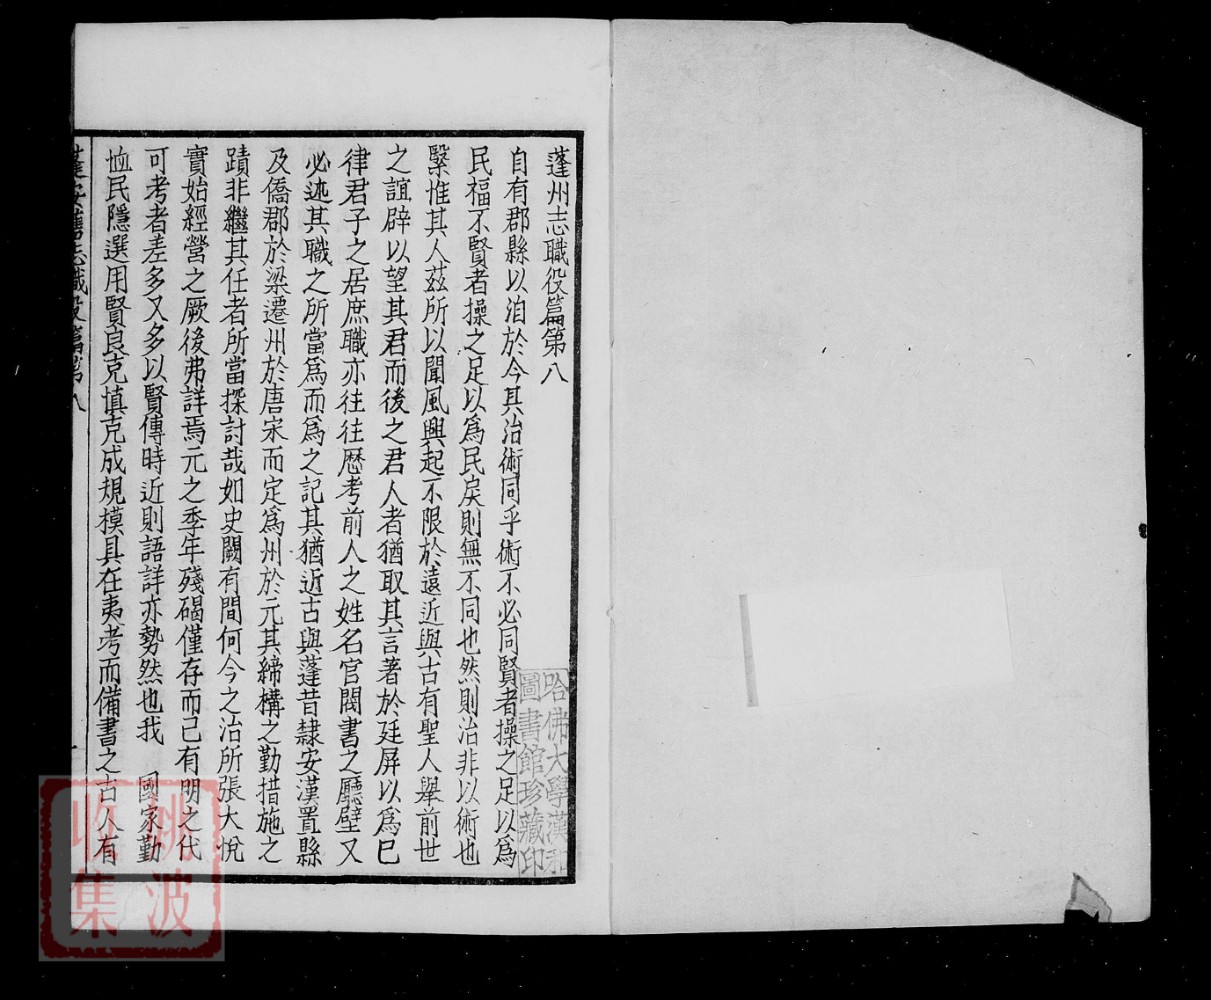 蓬州志職役篇第八
自有郡縣以洎於今其治術同乎術不必同賢者操之足以為
民福不賢者操之足以為民戾則無不同也然則治非以術也
繄惟其人茲所以聞風興起不限於遠近與古有聖人舉前世
之誼辟以望其君而後之君人者猶取其言著於廷屏以為巳
律君子之居庶職亦往往歷考前人之姓名官閥書之廳壁又
必迹其職之所當為而為之記其猶近古與蓬昔隸安漢置縣
及僑郡於梁遷州於唐宋而定為州於元其締構之勤措施之
蹟非繼其任者所當探討哉如史闕有間何今之治所張大悅
實始經營之厥後弗詳焉元之季年殘碣僅存而已有明之代
可考者差多又多以賢傳時近則語詳亦勢然也我　國家勤
恤民隱選用賢良克慎克成規摸具在夷考而備書之古人有
蓬安舊志職役篇第八
哈佛大學漢和
圖書館珍藏印
姚波
收集